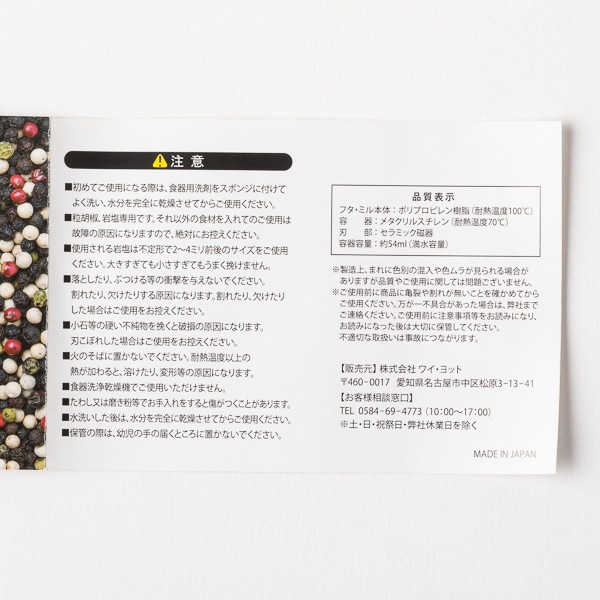 注意
■初めてご使用になる際は、食器用洗剤をスポンジに付けて
よく洗い、水分を完全に乾燥させてからご使用ください。
■粒胡椒、岩塩専用です。それ以外の食材を入れてのご使用は
故障の原因になりますので、絶対にお控えください。
■使用される岩塩は不定形で2〜4ミリ前後のサイズをご使用
ください。大きすぎても小さすぎてもうまく挽けません。
■落としたり、ぶつける等の衝撃を与えないでください。
割れたり、欠けたりする原因になります。割れたり、欠けたり
した場合はご使用をお控えください。
■小石等の硬い不純物を挽くと破損の原因になります。
刃こぼれした場合は、ご使用をお控えください。
■火のそばに置かないでください。耐熱温度以上の
熱が加わると、溶けたり、変形等の原因になります。
■食器洗浄乾燥機でご使用いただけません。
■たわし又は磨き粉等でお手入れをすると傷がつくことがあります。
■水洗いした後は、水分を完全に乾燥させてからご使用ください。
■保管の際は、幼児の手の届くところに置かないでください。
品質表示
フタ・ミル本体：ポリプロピレン樹脂（耐熱温度100℃）
容器：メタクリルスチレン（耐熱温度70℃）
刃部：セラミック磁器
容器容量：約54ml（満水容量）
※製造上、まれに色別の混入や色ムラが見られる場合が
ありますが品質やご使用に関しては問題ございません。
※ご使用前に商品に亀裂や割れが無いことを確かめてから
ご使用ください。万が一不具合があった場合は、弊社まで
ご連絡ください。ご使用前に注意事項等をお読みになり、
お読みになった後は大切に保管してください。
不適切な取扱いは事故につながります。
【販売元】株式会社 ワイ・ヨット
〒460-0017 愛知県名古屋市中区松原3-13-41
【お客様相談窓口】
TEL 0584-69-4773（10：00〜17：00）
※土・日・祝祭日・弊社休業日を除く
MADE IN JAPAN